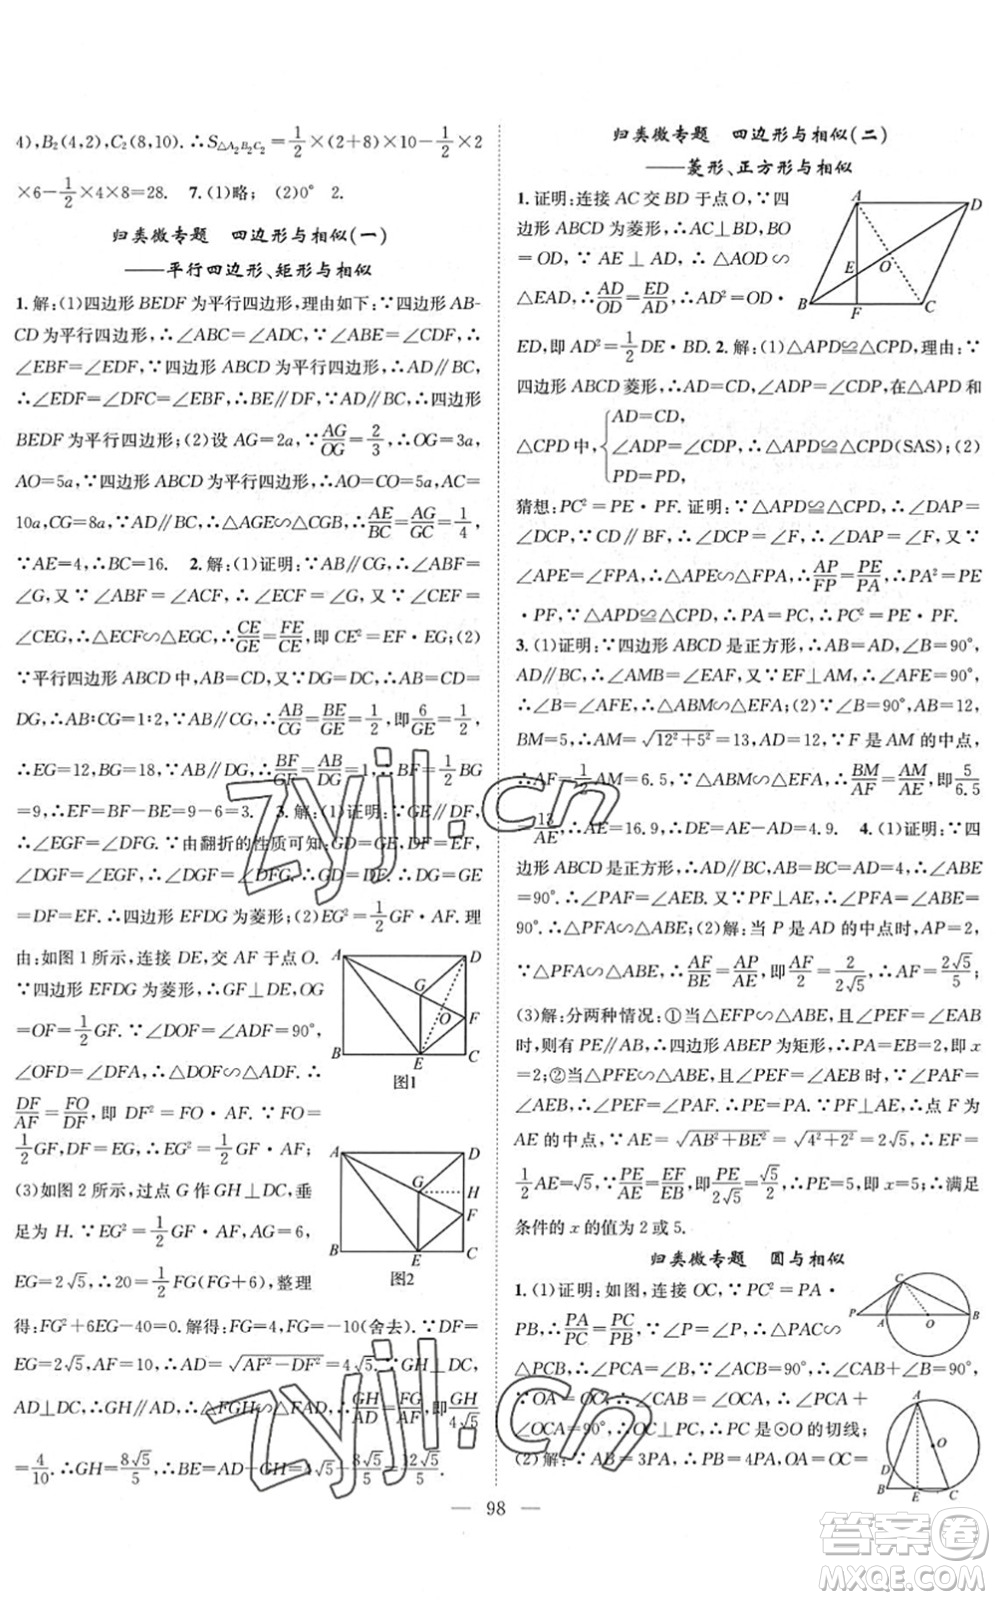 4),B₂(4,2),C₂(8,10).∴S△A₂B₂C₂=1/2×(2+8)×10-1/2×2
×6-1/2×4×8=28. 7.(1)略; (2)0° 2.
归类微专题 四边形与相似(一)
——平行四边形、矩形与相似
1.解:(1)四边形BEDF为平行四边形,理由如下:∵四边形AB-
CD为平行四边形,∴∠ABC=∠ADC,∵∠ABE=∠CDF,∴
∠EBF=∠EDF,∵四边形ABCD为平行四边形,∴AD∥BC,
∴∠EDF=∠DFC=∠EBF,∴BE∥DF,∵AD∥BC,∴四边形
BEDF为平行四边形;(2)设AG=2a,∵AG/OG=2/3,∴OG=3a,
AO=5a,∵四边形ABCD为平行四边形,∴AO=CO=5a,AC=
10a,CG=8a,∵AD∥BC,∴△AGE∽△CGB,∴AE/BC=AG/GC=1/4,
∵AE=4,∴BC=16. 2.解:(1)证明:∵AB∥CG,∴∠ABF=
∠G,又∵∠ABF=∠ACF,∴∠ECF=∠G,又∵∠CEF=
∠CEG,∴△ECF∽△EGC,∴CE/GE=FE/CE,即CE²=EF·EG;(2)
∵平行四边形ABCD中,AB=CD,又∵DG=DC,∴AB=CD=
DG,∴AB:CG=1:2,∵AB∥CG,∴AB/CG=BE/GE=1/2,即6/GE=1/2,
∴EG=12,BG=18,∵AB∥DG,∴BF/GF=AB/DG=1,∴BF=1/2BG
=9,∴EF=BF-BE=9-6=3. 3.解:(1)证明:∵GE∥DF,
∴∠EGF=∠DFG.∵由翻折的性质可知:GD=GE,DF=EF,
∠DGF=∠EGF,∴∠DGF=∠DFG.∴GD=DF.∴DG=GE
=DF=EF.∴四边形EFDG为菱形;(2)EG²=1/2GF·AF.理
由:如图1所示,连接DE,交AF于点O.
∵四边形EFDG为菱形,∴GF⊥DE,OG
=OF=1/2GF.∵∠DOF=∠ADF=90°,
∠OFD=∠DFA,∴△DOF∽△ADF.∴
DF/AF=FO/DF,即DF²=FO·AF.∵FO=
1/2GF,DF=EG,∴EG²=1/2GF·AF;
(3)如图2所示,过点G作GH⊥DC,垂
足为H.∵EG²=1/2GF·AF,AG=6,
EG=2√5,∴20=1/2FG(FG+6),整理
得:FG²+6EG-40=0.解得:FG=4,FG=-10(舍去).∵DF=
EG=2√5,AF=10,∴AD=√(AF²-DF²)=4√5.∵GH⊥DC,
AD⊥DC,∴GH∥AD,∴△FGH∽△FAD,∴GH/AD=FG/AF,即GH/4√5
=4/10.∴GH=8√5/5,∴BE=AD-GH=4√5-8√5/5=12√5/5.
A
D
G
O
F
B
E
C
图1
A
D
G
H
F
B
E
C
图2
归类微专题 四边形与相似(二)
——菱形、正方形与相似
1.证明:连接AC交BD于点O,∵四
边形ABCD为菱形,∴AC⊥BD,BO
=OD,∵AE⊥AD,∴△AOD∽
△EAD,∴AD/OD=ED/AD,∴AD²=OD·
A
D
E
O
B
F
C
ED,即AD²=1/2DE·BD. 2.解:(1)△APD≌△CPD,理由:∵
四边形ABCD菱形,∴AD=CD,∠ADP=∠CDP,在△APD和
△CPD中,{AD=CD, ∠ADP=∠CDP, PD=PD ∴△APD≌△CPD(SAS);(2)
猜想:PC²=PE·PF.证明:∵△APD≌△CPD,∴∠DAP=
∠DCP,∵CD∥BF,∴∠DCP=∠F,∴∠DAP=∠F,又∵
∠APE=∠FPA,∴△APE∽△FPA,∴AP/FP=PE/PA,∴PA²=PE
·PF,∵△APD≌△CPD,∴PA=PC,∴PC²=PE·PF.
3.(1)证明:∵四边形ABCD是正方形,∴AB=AD,∠B=90°,
AD∥BC,∴∠AMB=∠EAF,又∵EF⊥AM,∴∠AFE=90°,
∴∠B=∠AFE,∴△ABM∽△EFA;(2)∵∠B=90°,AB=12,
BM=5,∴AM=√(12²+5²)=13,AD=12,∵F是AM的中点,
∴AF=1/2AM=6.5,∵△ABM∽△EFA,∴BM/AF=AM/AE,即5/6.5
=13/AE,∴AE=16.9,∴DE=AE-AD=4.9. 4.(1)证明:∵四
边形ABCD是正方形,∴AD∥BC,AB=BC=AD=4,∠ABE
=90°.∴∠PAF=∠AEB.又∵PF⊥AE,∴∠PFA=∠ABE=
90°.∴△PFA∽△ABE;(2)解:当P是AD的中点时,AP=2,
∵△PFA∽△ABE,∴AF/BE=AP/AE,即AF/2=2/2√5,∴AF=2√5/5;
(3)解:分两种情况:①当△EFP∽△ABE,且∠PEF=∠EAB
时,则有PE∥AB,∴四边形ABEP为矩形,∴PA=EB=2,即x
=2;②当△PFE∽△ABE,且∠PEF=∠AEB时,∵∠PAF=
∠AEB,∴∠PEF=∠PAF.∴PE=PA.∵PF⊥AE,∴点F为
AE的中点,∵AE=√(AB²+BE²)=√(4²+2²)=2√5,∴EF=
1/2AE=√5,∵PE/AE=EF/EB,即PE/2√5=√5/2,∴PE=5,即x=5;∴满足
条件的x的值为2或5.
归类微专题 圆与相似
1.(1)证明:如图,连接OC,∵PC²=PA·
PB,∴PA/PC=PC/PB,∵∠P=∠P,∴△PAC∽
△PCB,∴∠PCA=∠B,∵∠ACB=90°,∴∠CAB+∠B=
90°,∵OA=OC,∴∠CAB=∠OCA,∴∠PCA+
∠OCA=90°,∴OC⊥PC,∴PC是⊙O的切线;
(2)解:∵AB=3PA,∴PB=4PA,OA=OC=
C
P
A
O
B
A
O
D
B
E
C
98
zyjl.cn
zyjl.cn
答案圈
MXQE.COM